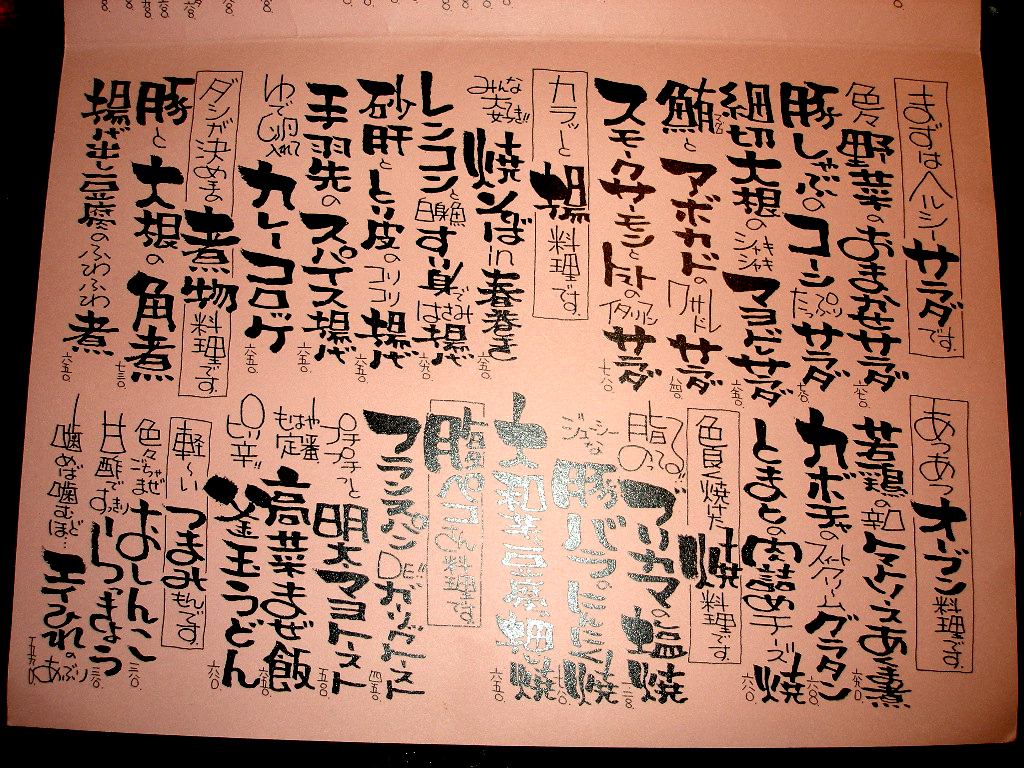 まずはヘルシーサラダです。
色々野菜のおまかせサラダ 六七〇.
豚しゃぶのコーンたっぷりサラダ 七〇〇.
細切大根のシャキシャキマヨドレサラダ 六五〇.
鮪とアボカドのワサビドレサラダ 八四〇.
スモークサーモンとトマトのイタリアンサラダ 七八〇.
カラッと揚料理です。
みんな大好き!!焼そばin春巻き 六五〇.
レンコンと白身魚すり身はさみ揚げ 六九〇.
砂肝ととり皮のコリコリ揚げ 六五〇.
手羽先のスパイス揚げ 六五〇.
ゆで卵入れてカレーコロッケ 六五〇.
ダシが決めての煮物料理です。
豚と大根の角煮 七三〇.
揚げ出し豆腐のふわふわ煮 六五〇.
あつあつオーブン料理です。
若鶏の辛口トマトソースあつあつ煮
カボチャのスイートクリームグラタン 六八〇.
とまとの肉詰めチーズ焼 六八〇.
色良く焼けた焼料理です。
脂がのってる!!ブリカマの塩焼
ジューシーな豚バラのにんにく焼
大和芋豆腐の網焼
腹ペコに料理です。
フランスパンDE!!ガーリックトースト 四五〇.
プチプチっと明太マヨトースト 五〇〇.
もはや定番高菜まぜ飯 六五〇.
ピリ辛!!釜玉うどん 六八〇.
軽〜いつまみもんです。
色々ごちゃまぜおしんこ 三五〇.
甘酢ですっきりらっきょう 三五〇.
噛めば噛むほど…エイひれあぶり